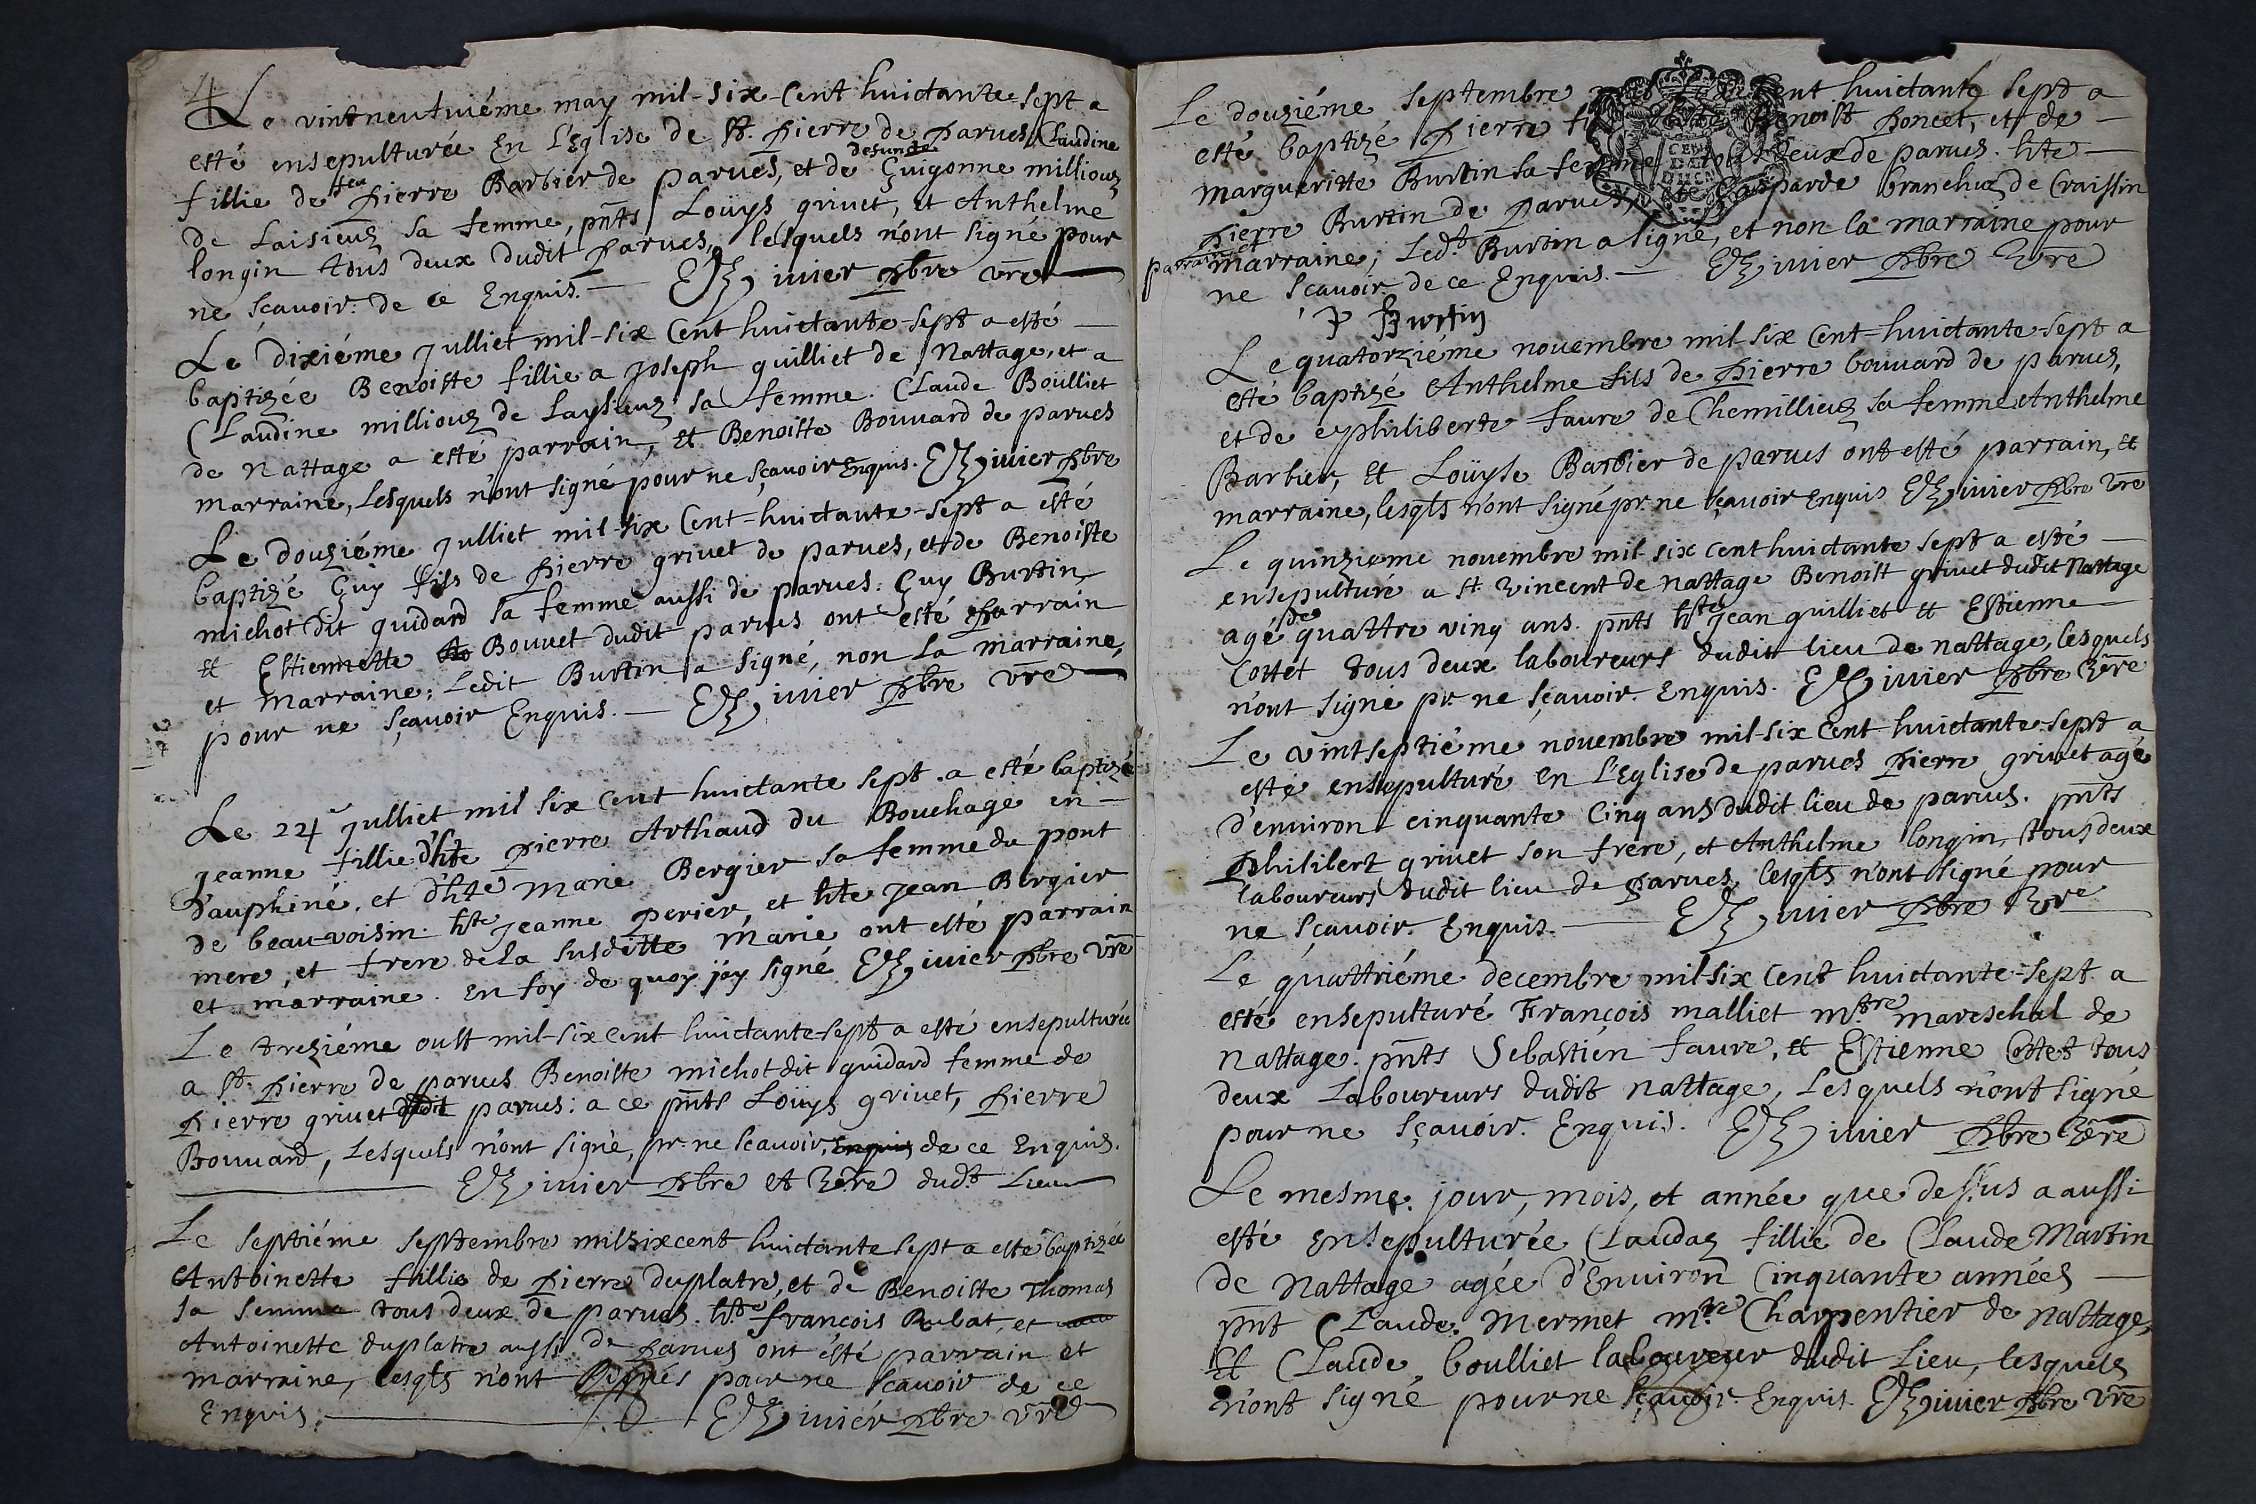 4
Le vintneufuiéme may mil-six-Cent huictante-sept a
esté ensepulturée En L'Eglise de St. Pierre de Parves, Claudine
fillie de feu Pierre Barbier de parves, et de defuncte Guigonne milliouz
de Laisieuz sa femme, pnts Loüys grivet, et Anthelme
longin tous deux dudit Parves, lesquels n'ont signé pour
ne sçavoir. de ce Enquis. — Juvier pbre vre
Le dixiéme Julliet mil-six Cent-huictante-sept a esté —
baptizée Benoiste fillie a Joseph quilliet de Nattage, et a
Claudine milliouz de Laysieuz sa femme. Claude Boulliet
de Nattage a esté parrain, et Benoiste Bouvard de parves
marraine, Lesquels n'ont signé pour ne sçavoir Enquis. Juvier pbre
Le douziéme Julliet mil-six Cent-huictante-sept a esté
baptizé Guy fils de Pierre grivet de parves, et de Benoiste
michot dit guidard sa femme aussi de parves. Guy Burtin
et Estiennette Bouvet dudit parves ont esté parrain
et Marraine; Ledit Burtin a signé, non la marraine,
pour ne sçavoir Enquis. — Juvier pbre vre
Le 24e Julliet mil six cent huictante sept. a esté baptizé
jeanne fillie d'hte pierre Arthaud du Bouchage en —
Dauphiné, et d'hte marie Bergier sa femme du pont
de beauvoisin. hte jeanne perier, et hte jean Bergier
mere, et frere de la susditte Marie ont esté parrain
et marraine. En foy de quoy j'ay signé Juvier pbre vre
Le treziéme oust mil-six cent huictante-sept a esté ensepulturée
a St. Pierre de parves Benoiste michot dit guidard femme de
Pierre grivet dudit parves: a ce pnts Loüys grivet, Pierre
Bouvard, Lesquels n'ont signé, pr. ne scavoir, Enquis de ce Enquis.
Juvier pbre et vre dudt Lieu
Le septiéme septembre mil six cent huictante sept a esté baptizée
Antoinette fillie de Pierre duplatre, et de Benoiste Thomas
sa femme tous deux de parves. hte françois Rubat, et
Antoinette duplatre aussi de Parves ont ésté parrain et
marraine, lesqls n'ont signés pour ne scavoir de ce
Enquis. Juvier pbre vre
Le douziéme septembre Cent huictante sept a
esté baptizé Pierre Benoist Poncet, et de —
margueritte Burtin sa femme tous deux de parves. hte —
Pierre Burtin de Parves, Gasparde branchuz de Craissin
parrain marraine; Ledt. Burtin a signé, et non la marraine pour
ne sçavoir de ce Enquis. — Juvier pbre vre
P Burtin
Le quatorziéme novembre mil six Cent-huictante-sept a
esté baptizé Anthelme fils de Pierre bouvard de parves,
et de philiberte faure de Chemillieuz sa femme Anthelme
Barbier, et Loüyse Barbier de parves ont esté parrain, et
marraine, lesqls n'ont signé pr. ne sçavoir Enquis Juvier pbre vre
Le quinzieme novembre mil six cent huictante sept a esté —
ensepulturé a St. vincent de nattage Benoist grivet dudit Nattage
agé de quattre vinq ans. pnts hte Jean quilliet et Estienne
Cottet tous deux laboureurs dudit lieu de nattage, lesquels
n'ont signé pr. ne sçavoir. Enquis. Juvier pbre vre
Le vintseptiéme novembre mil-six Cent huictante-sept a
esté ensepulturé en L'Eglise de parves Pierre grivet agé
d'environ cinquante Cinq ans dudit lieu de parves. pnts
Philibert grivet son frere, et Anthelme longin, tous deux
laboureurs dudit lieu de Parves, lesqls n'ont signé pour
ne sçavoir. Enquis. — Juvier pbre vre
Le quattriéme decembre mil-six Cent huictante-sept a
esté ensepulturé François malliet mtre mareschal de
Nattage. pnts Sebastien faure, et Estienne Cottet tous
deux Laboureurs dudit nattage, Lesquels n'ont signé
pour ne sçavoir. Enquis. Juvier pbre vre
Le mesme jour, mois, et année que dessus a aussi
esté Ensepulturée Claudaz fillie de Claude Martin
de Nattage agée d'Environ Cinquante années —
pnt Claude Mermet mtre Charpentier de nattage,
Et Claude boulliet laboureur dudit Lieu, lesquels
n'ont signé pour ne sçavoir. Enquis Juvier pbre vre